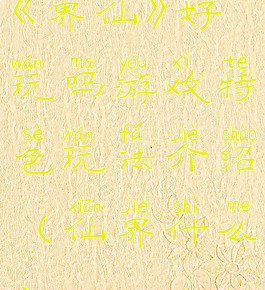 《界仙》好
wán ma yóu xì tè
玩吗游戏特
sè wán fǎ jiè shào
色玩法介绍
xiān jiè shí me
（仙界什么